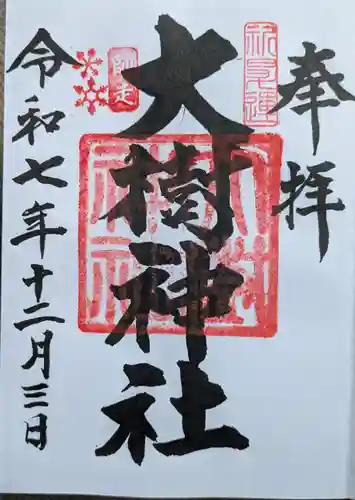 奉拝
大樹神社
師走
令和七年十二月三日